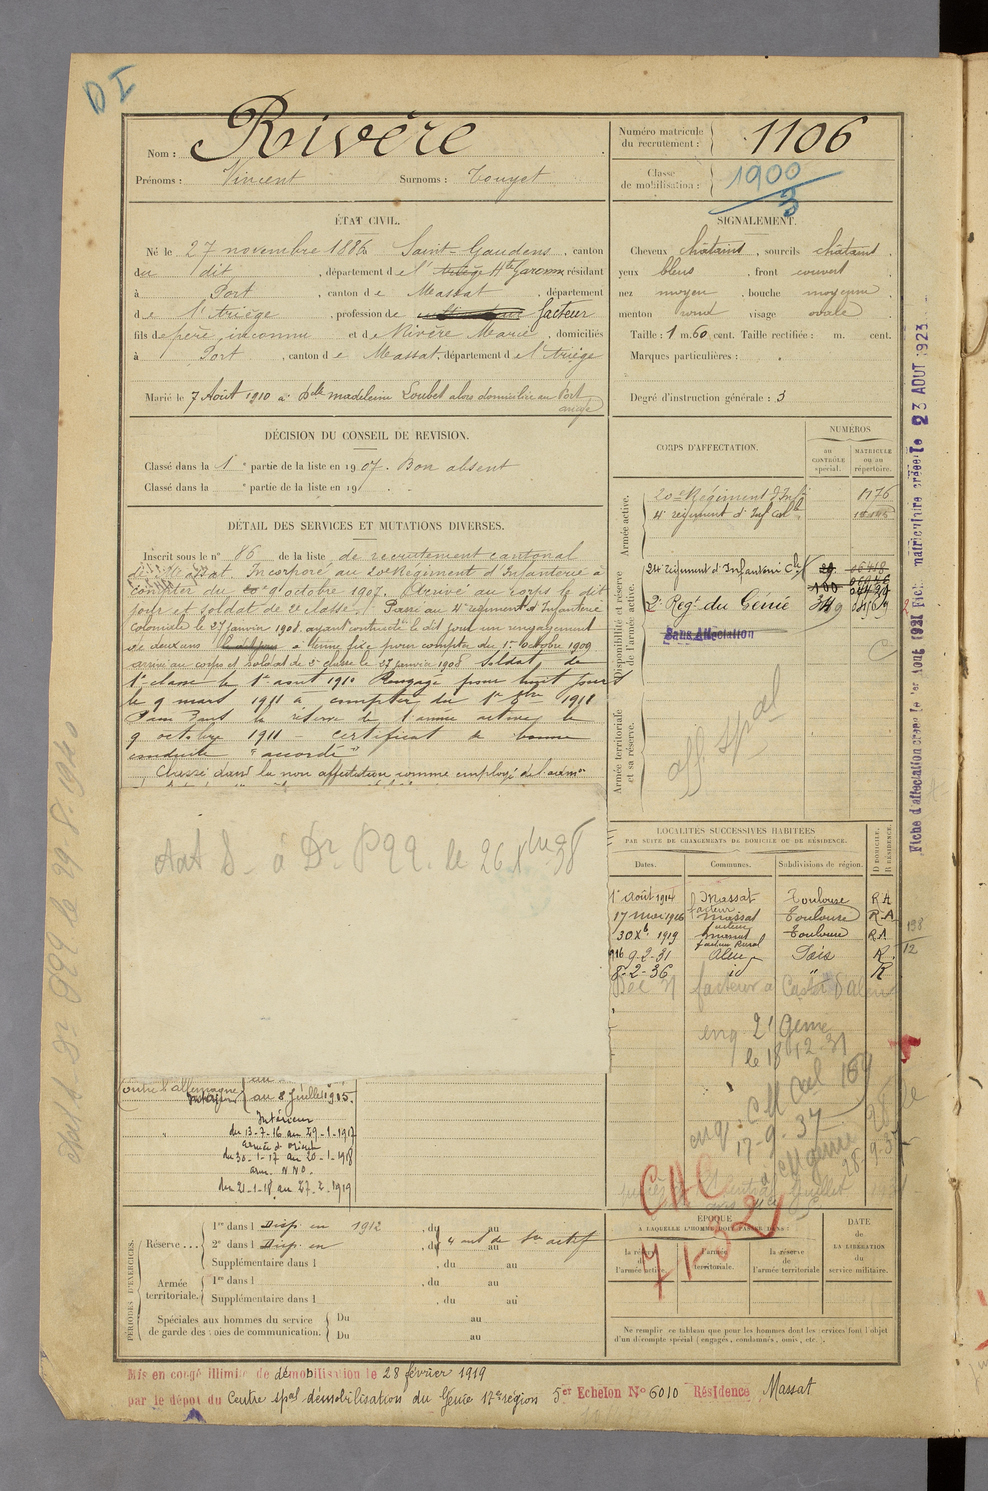 D I
Nom : Rivère
Prénoms : Vincent Surnoms : Touyet
Numéro matricule du recrutement : 1106
Classe de mobilisation : 1900
3
ÉTAT CIVIL.
Né le 27 novembre 1886 à Saint-Gaudens, canton
du dit, département de l'Ariège Hte Garonne, résidant
à Port, canton de Massat, département
de l'Ariège, profession de facteur
fils de père inconnu et de Rivère Marie, domiciliés
à Port, canton de Massat, département de l'Ariège
Marié le 7 Août 1910 à Delle Madeleine Loubet alors domiciliée au Port
ariège
SIGNALEMENT.
Cheveux châtains, sourcils châtains,
yeux bleus, front couvert,
nez moyen, bouche moyenne,
menton rond visage ovale
Taille : 1 m. 60 cent. Taille rectifiée : m. cent.
Marques particulières :
Degré d'instruction générale : 3
DÉCISION DU CONSEIL DE REVISION.
Classé dans la 1e partie de la liste en 1907. Bon absent
Classé dans la e partie de la liste en 19
DÉTAIL DES SERVICES ET MUTATIONS DIVERSES.
Inscrit sous le n° 86 de la liste de recrutement cantonal
de Massat. Incorporé au 20e Régiment d'Infanterie à
compter du 9 octobre 1907. Arrivé au corps le dit
jour et soldat de 2e classe. Passé au 4e régiment d'Infanterie
Coloniale le 27 janvier 1908 ayant contracté le dit jour un rengagement
de deux ans à terme fixe pour compter du 1er octobre 1909
arrivé au corps et soldat de 2e classe le 27 janvier 1908 Soldat de
1e classe le 1er août 1910 Rengagé pour huit jours
le 9 mars 1911 à compter du 1er 8bre 1911
Passé dans la réserve de l'armée active le
9 octobre 1911 - certificat de bonne
conduite "accordé"
Classé dans la non affectation comme employé de l'adm
CORPS D'AFFECTATION.
NUMÉROS
au CONTRÔLE spécial.
MATRICULE ou au répertoire.
Armée active.
20e Régiment d'Infie 1176
4e régiment d'Inf Colle
Disponibilité et réserve de l'armée active.
24 régiment d'Infanterie Cle
2e Regt du Génie
Sans Affectation
Armée territoriale et sa réserve.
aff. spal
Fiche d'affectation créée le 1er Août 1921 Fic. matriculaire créée le 23 AOUT 1923
LOCALITÉS SUCCESSIVES HABITÉES
PAR SUITE DE CHANGEMENTS DE DOMICILE OU DE RÉSIDENCE.
Dates. Communes. Subdivisions de région. D DOMICILE. R RÉSIDENCE.
1er Août 1914 Massat Toulouse RA
17 mai 1916 facteur Massat Toulouse RA
30 Xb 1919 facteur Massat Toulouse RA
facteur Rural
9-2-31 Aleu Foix R.
8-2-36 id " R
facteur à Castet d'Aleu
198
12
enq 21 Génie
le 18-12-31
enq. CM Cal 159
17-9-37
CM génie
28-9-37
CAC
71-32
contre l'allemagne
Intérieur au 8 Juillet 1915.
Intérieur
du 13-7-16 au 29-1-1917
armée d'orient
du 30-1-17 au 20-1-1918
arm. N NO.
du 21-1-18 au 27-2-1919
PÉRIODES D'EXERCICES.
Réserve ... 1re dans l Disp. en 1912, du au
2e dans l Disp. en, du 4 ant de Sce actif au
Supplémentaire dans l, du au
Armée territoriale. 1re dans l, du au
Supplémentaire dans l, du au
Spéciales aux hommes du service de garde des voies de communication. Du au
Du au
ÉPOQUE
À LAQUELLE L'HOMME DOIT PASSER DANS :
la réserve de l'armée active.
l'armée territoriale.
la réserve de l'armée territoriale
DATE
de
LA LIBÉRATION
du
service militaire.
Ne remplir ce tableau que pour les hommes dont les services font l'objet
d'un décompte spécial (engagés, condamnés, omis, etc.)
Mis en congé illimité de démobilisation le 28 février 1919
par le dépôt du Centre spal démobilisation du Génie 17e région 5er Echelon N° 6010 Résidence Massat